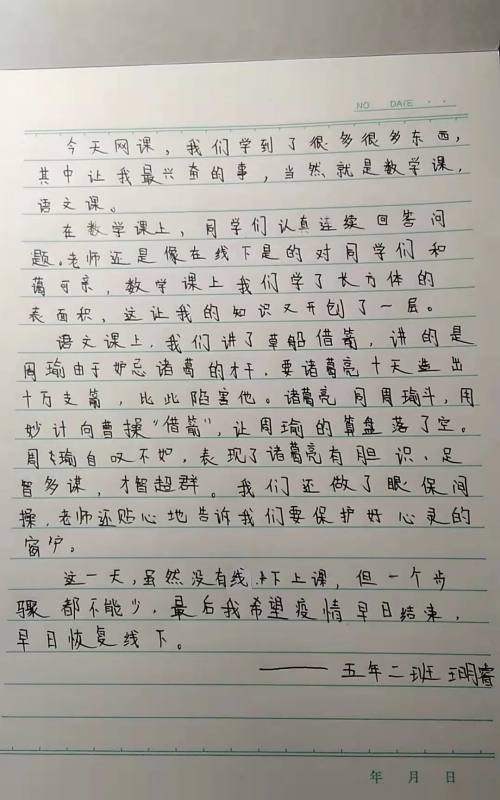 NO  DATE
今天网课，我们学到了很多很多东西，
其中让我最兴奋的事，当然就是数学课，
语文课。
在数学课上，同学们认真连续回答问
题。老师还是像在线下是的对同学们和
蔼可亲，数学课上我们学了长方体的
表面积，这让我的知识又开刨了一层。
语文课上，我们讲了草船借箭，讲的是
周瑜由于妒忌诸葛的才干，要诸葛亮十天造出
十万支箭，比此陷害他。诸葛亮同周瑜斗，用
妙计向曹操“借箭”，让周瑜的算盘落了空。
周瑜自叹不如，表现了诸葛亮有胆识、足
智多谋，才智超群。我们还做了眼保间
操，老师还贴心地告诉我们要保护好心灵的
窗护。
这一天，虽然没有线下上课，但一个步
骤都不能少，最后我希望疫情早日结束，
早日恢复线下。
——五年二班 明睿
年 月 日